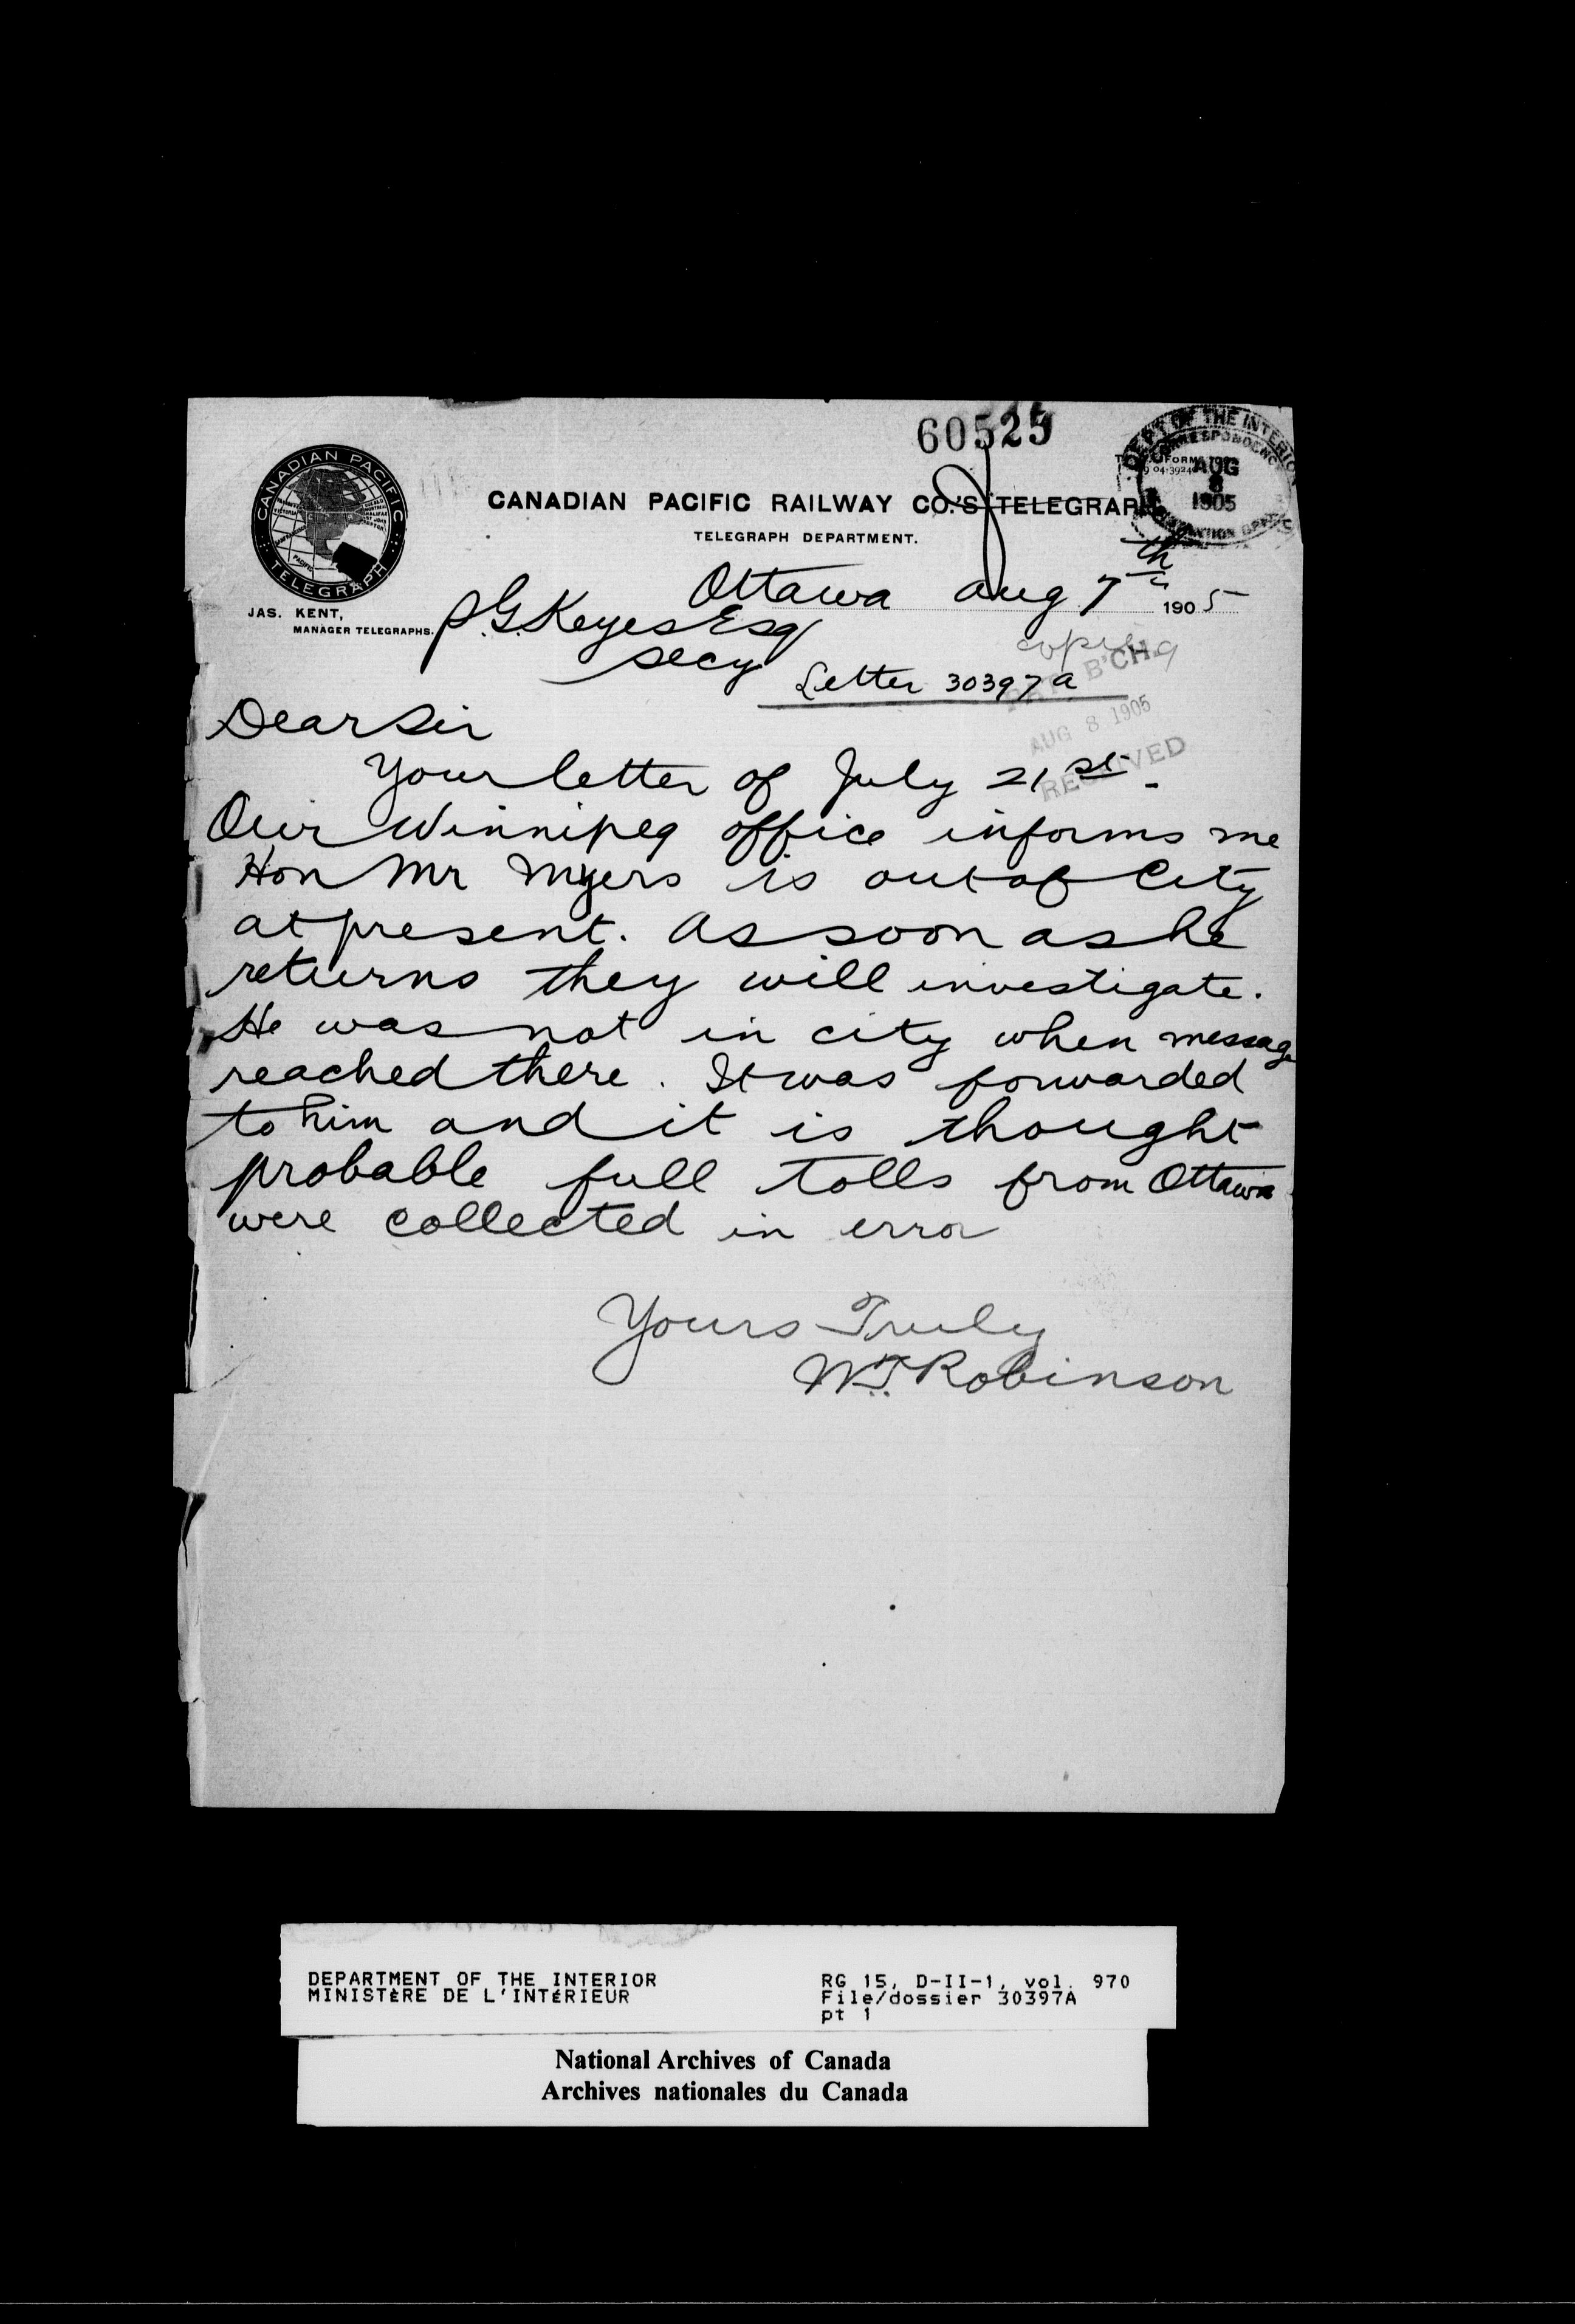 60525
DEPT OF THE INTERIOR
CORRESPONDENCE
AUG
8
1905
CANADIAN PACIFIC
TELEGRAPH
CANADIAN PACIFIC RAILWAY CO.'S TELEGRAPH
TELEGRAPH DEPARTMENT.
JAS. KENT,
MANAGER TELEGRAPHS.
Ottawa Aug 7th 1905
P.G. Keyes Esq
Secy
Letter 30397a
B'CH.
AUG 8 1905
RECEIVED
Dear Sir
Your letter of July 21st.
Our Winnipeg office informs me
Hon Mr Myers is out of City
at present. As soon as he
returns they will investigate.
He was not in city when message
reached there. It was forwarded
to him and it is thought
probable full tolls from Ottawa
were collected in error
Yours Truly
W.J. Robinson
DEPARTMENT OF THE INTERIOR
MINISTÈRE DE L'INTÉRIEUR
RG 15, D-II-1, vol. 970
File/dossier 30397A
pt 1
National Archives of Canada
Archives nationales du Canada